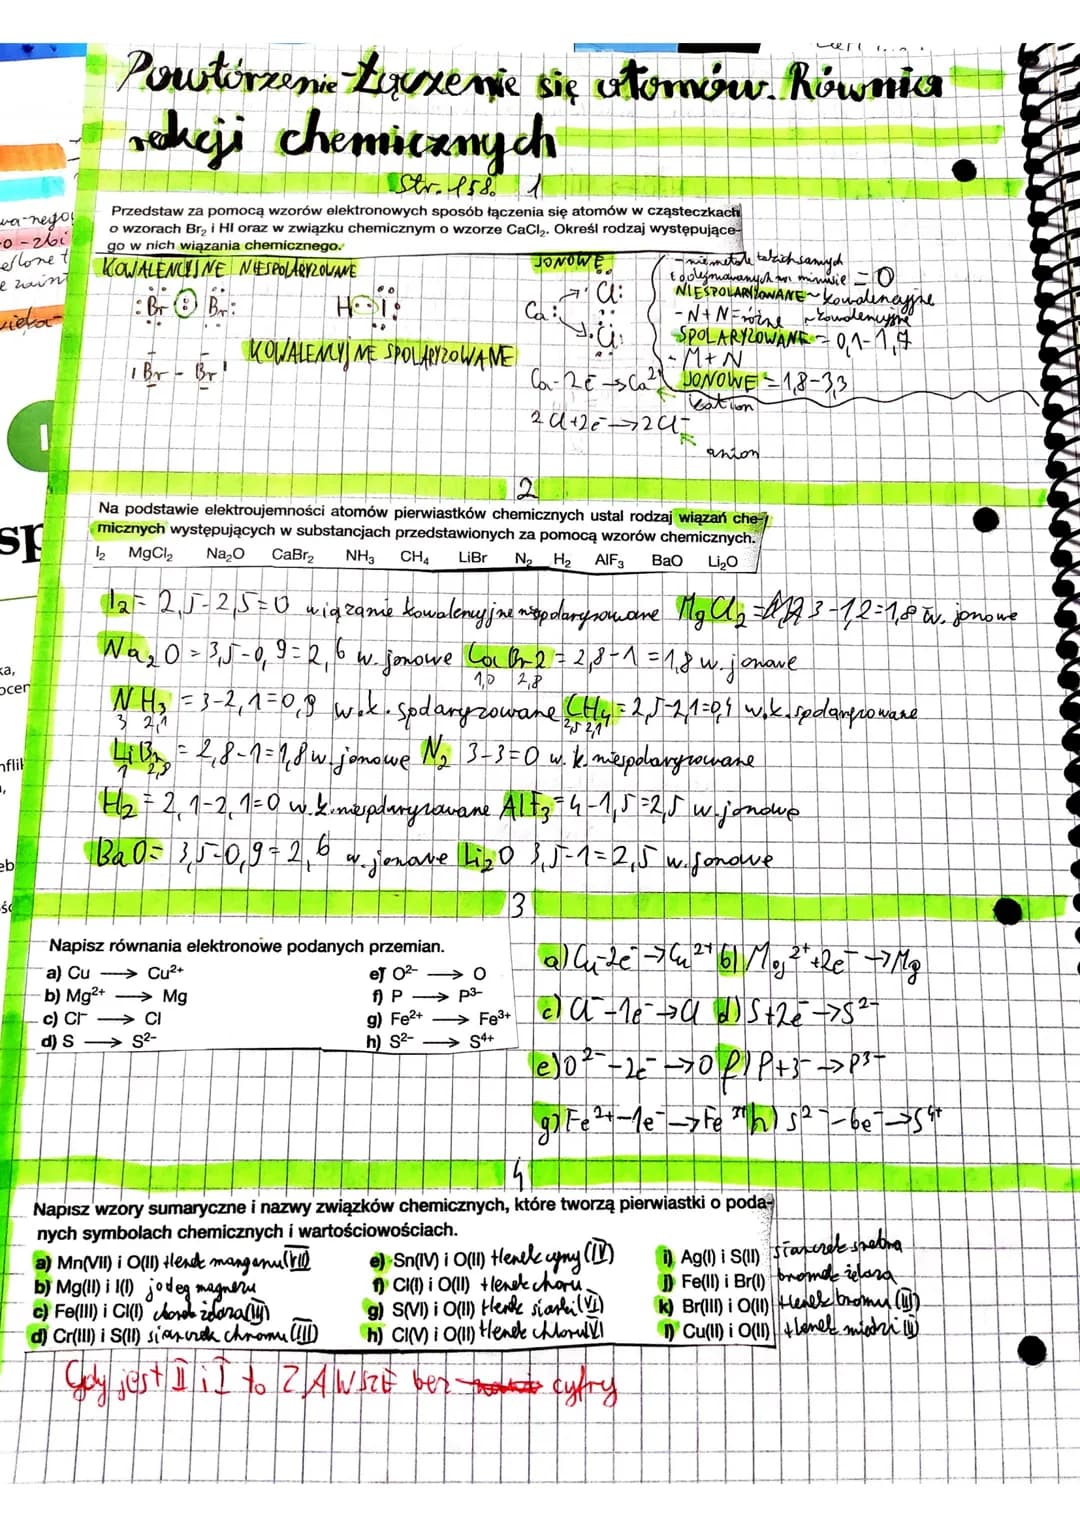 Powtórzenie-Łączenie się atomów. Równica
reakcji chemicznych
Str. 158. 1
Przedstaw za pomocą wzorów elektronowych sposób łączenia się atomów w cząsteczkach
o wzorach Br₂ i HI oraz w związku chemicznym o wzorze CaCl₂. Określ rodzaj występujące-
go w nich wiązania chemicznego.
KOWALENCYJNE NIESPOLARYZOWANE
JONOWE
-niemetale takich samych
minusie = 0
NIESPOLARYZOWANE~kowalencyjne
-N+N=różne ~kowalencyjne
SPOLARYZOWANE = 0,1-1,7
- M+N
JONOWE = 1,8-3,3
:Br : Br:
H : I :
Ca:
Cl:
Cl:
|Br - Br|
KOWALENCYJNE SPOLARYZOWANE
Ca-2e⁻→Ca²⁺
kation
2Cl+2e⁻→2Cl⁻
anion
2
Na podstawie elektroujemności atomów pierwiastków chemicznych ustal rodzaj wiązań che-
micznych występujących w substancjach przedstawionych za pomocą wzorów chemicznych.
I₂ MgCl₂ Na₂O CaBr₂ NH₃ CH₄ LiBr N₂ H₂ AlF₃ BaO Li₂O
I₂ = 2,5-2,5=0 wiązanie kowalencyjne niespolaryzowane MgCl₂ = 3-1,2=1,8 w. jonowe
Na₂O = 3,5-0,9=2,6 w. jonowe CaBr2 = 2,8-1=1,8 w. jonowe
1,0 2,8
NH₃ = 3-2,1=0,9 w.k. spolaryzowane CH₄ = 2,5-2,1=0,4 w.k. spolaryzowane
3 2,1 2,5 2,1
LiBr = 2,8-1=1,8 w. jonowe N₂ 3-3=0 w. k. niespolaryzowane
1 2,8
H₂ = 2,1-2,1=0 w.k. niespolaryzowane AlF₃=4-1,5=2,5 w. jonowe
BaO= 3,5-0,9=2,6 w. jonowe Li₂O 3,5-1=2,5 w. jonowe
3
Napisz równania elektronowe podanych przemian.
a) Cu → Cu²⁺ e) O²⁻ → O
b) Mg²⁺ → Mg f) P → P³⁻
c) Cl⁻ → Cl g) Fe²⁺ → Fe³⁺
d) S → S²⁻ h) S²⁻ → S⁴⁺
a) Cu-2e⁻→Cu²⁺ b) Mg²⁺+2e⁻→Mg
c) Cl⁻-1e⁻→Cl d) S+2e⁻→S²⁻
e) O²⁻-2e⁻→O f) P+3⁻→P³⁻
g) Fe²⁺-1e⁻→Fe³⁺ h) S²⁻-6e⁻→S⁴⁺
4
Napisz wzory sumaryczne i nazwy związków chemicznych, które tworzą pierwiastki o poda-
nych symbolach chemicznych i wartościowościach.
a) Mn(VII) i O(II) tlenek manganu(VII) e) Sn(IV) i O(II) tlenek cyny (IV) i) Ag(I) i S(II) siarczek srebra
b) Mg(II) i I(I) jodeg magnezu f) Cl(I) i O(II) tlenek choru j) Fe(II) i Br(I) bromek żelaza
c) Fe(III) i Cl(I) chlorek żelaza(III) g) S(VI) i O(II) tlenek siarki(VI) k) Br(III) i O(II) tlenek bromu (III)
d) Cr(III) i S(II) siarczek chromu (III) h) Cl(VI) i O(II) tlenek chloru VI l) Cu(II) i O(II) tlenek miedzi (II)
Gdy jest II i I to ZAWSZE bez cyfry